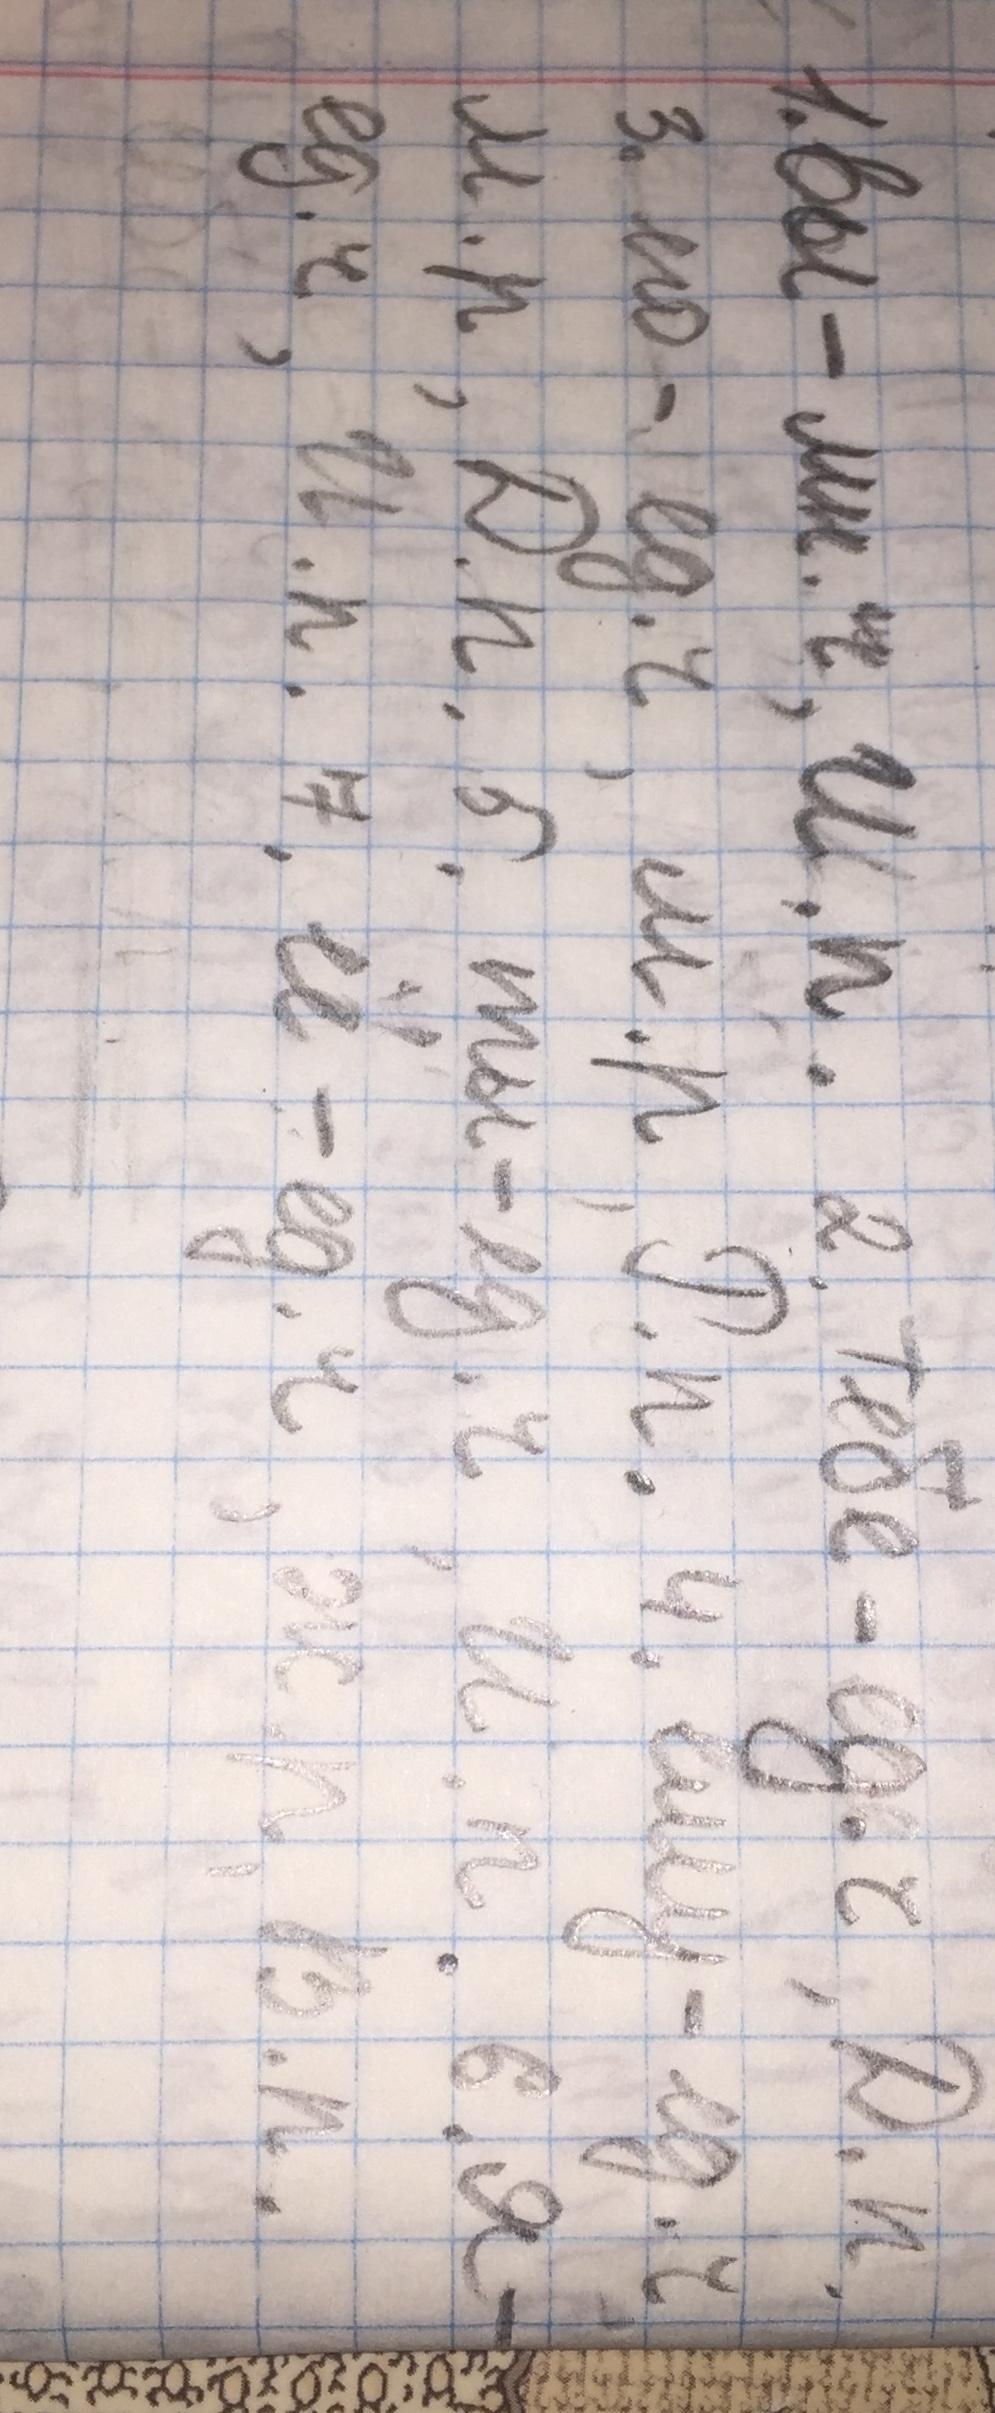 1. вы - мн. ч, И.п. 2. тебе - ед. ч, Д. п.
3. но - ед. ч, м. р, П. п. 4. ему - ед. ч
м. р, Д. п. 5. ты - ед. ч, И. п. 6. я -
ед. ч, И. п. 7. её - ед. ч, ж р, В. п.